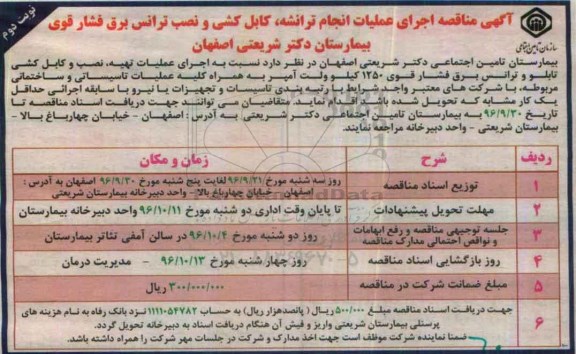 نوبت دوم
آگهی مناقصه اجرای عملیات انجام ترانشه، کابل کشی و نصب ترانس برق فشار قوی
بیمارستان دکتر شریعتی اصفهان
سازمان تأمین اجتماعی
بیمارستان تامین اجتماعی دکتر شریعتی اصفهان در نظر دارد نسبت به اجرای عملیات تهیه، نصب و کابل کشی
تابلو و ترانس برق فشار قوی ۱۲۵۰ کیلو ولت آمپر به همراه کلیه عملیات تاسیساتی و ساختمانی
مربوطه، با شرکت های معتبر واجد شرایط با رتبه بندی تاسیسات و تجهیزات یا نیرو با سابقه اجرائی حداقل
یک کار مشابه که تحویل شده باشد اقدام نماید. متقاضیان می توانند جهت دریافت اسناد مناقصه تا
تاریخ ۹۶/۹/۳۰ به بیمارستان تامین اجتماعی دکتر شریعتی به آدرس: اصفهان - خیابان چهارباغ بالا -
بیمارستان شریعتی - واحد دبیرخانه مراجعه نمایند.
ردیف شرح زمان و مکان
۱ توزیع اسناد مناقصه روز سه شنبه مورخ ۹۶/۹/۲۱ لغایت پنج شنبه مورخ ۹۶/۹/۳۰ اصفهان به آدرس:
اصفهان - خیابان چهارباغ بالا - واحد دبیرخانه بیمارستان شریعتی
۲ مهلت تحویل پیشنهادات تا پایان وقت اداری دو شنبه مورخ ۹۶/۱۰/۱۱ واحد دبیرخانه بیمارستان
۳ جلسه توجیهی مناقصه و رفع ابهامات و نواقص احتمالی مدارک مناقصه روز دو شنبه مورخ ۹۶/۱۰/۴ در سالن آمفی تئاتر بیمارستان
۴ روز بازگشایی اسناد مناقصه روز چهار شنبه مورخ ۹۶/۱۰/۱۳ - مدیریت درمان
۵ مبلغ ضمانت شرکت در مناقصه ۳۰۰/۰۰۰/۰۰۰ ریال
۶ جهت دریافت اسناد مناقصه مبلغ ۵۰۰/۰۰۰ ریال (پانصدهزار ریال) به حساب ۱۱۱۱۰۵۴۷۸۲ نزد بانک رفاه به نام هزینه های
پرسنلی بیمارستان شریعتی واریز و فیش آن هنگام دریافت اسناد به دبیرخانه تحویل گردد.
ضمنا نماینده شرکت موظف است جهت اخذ مدارک و شرکت در جلسات مهر شرکت را همراه داشته باشد.